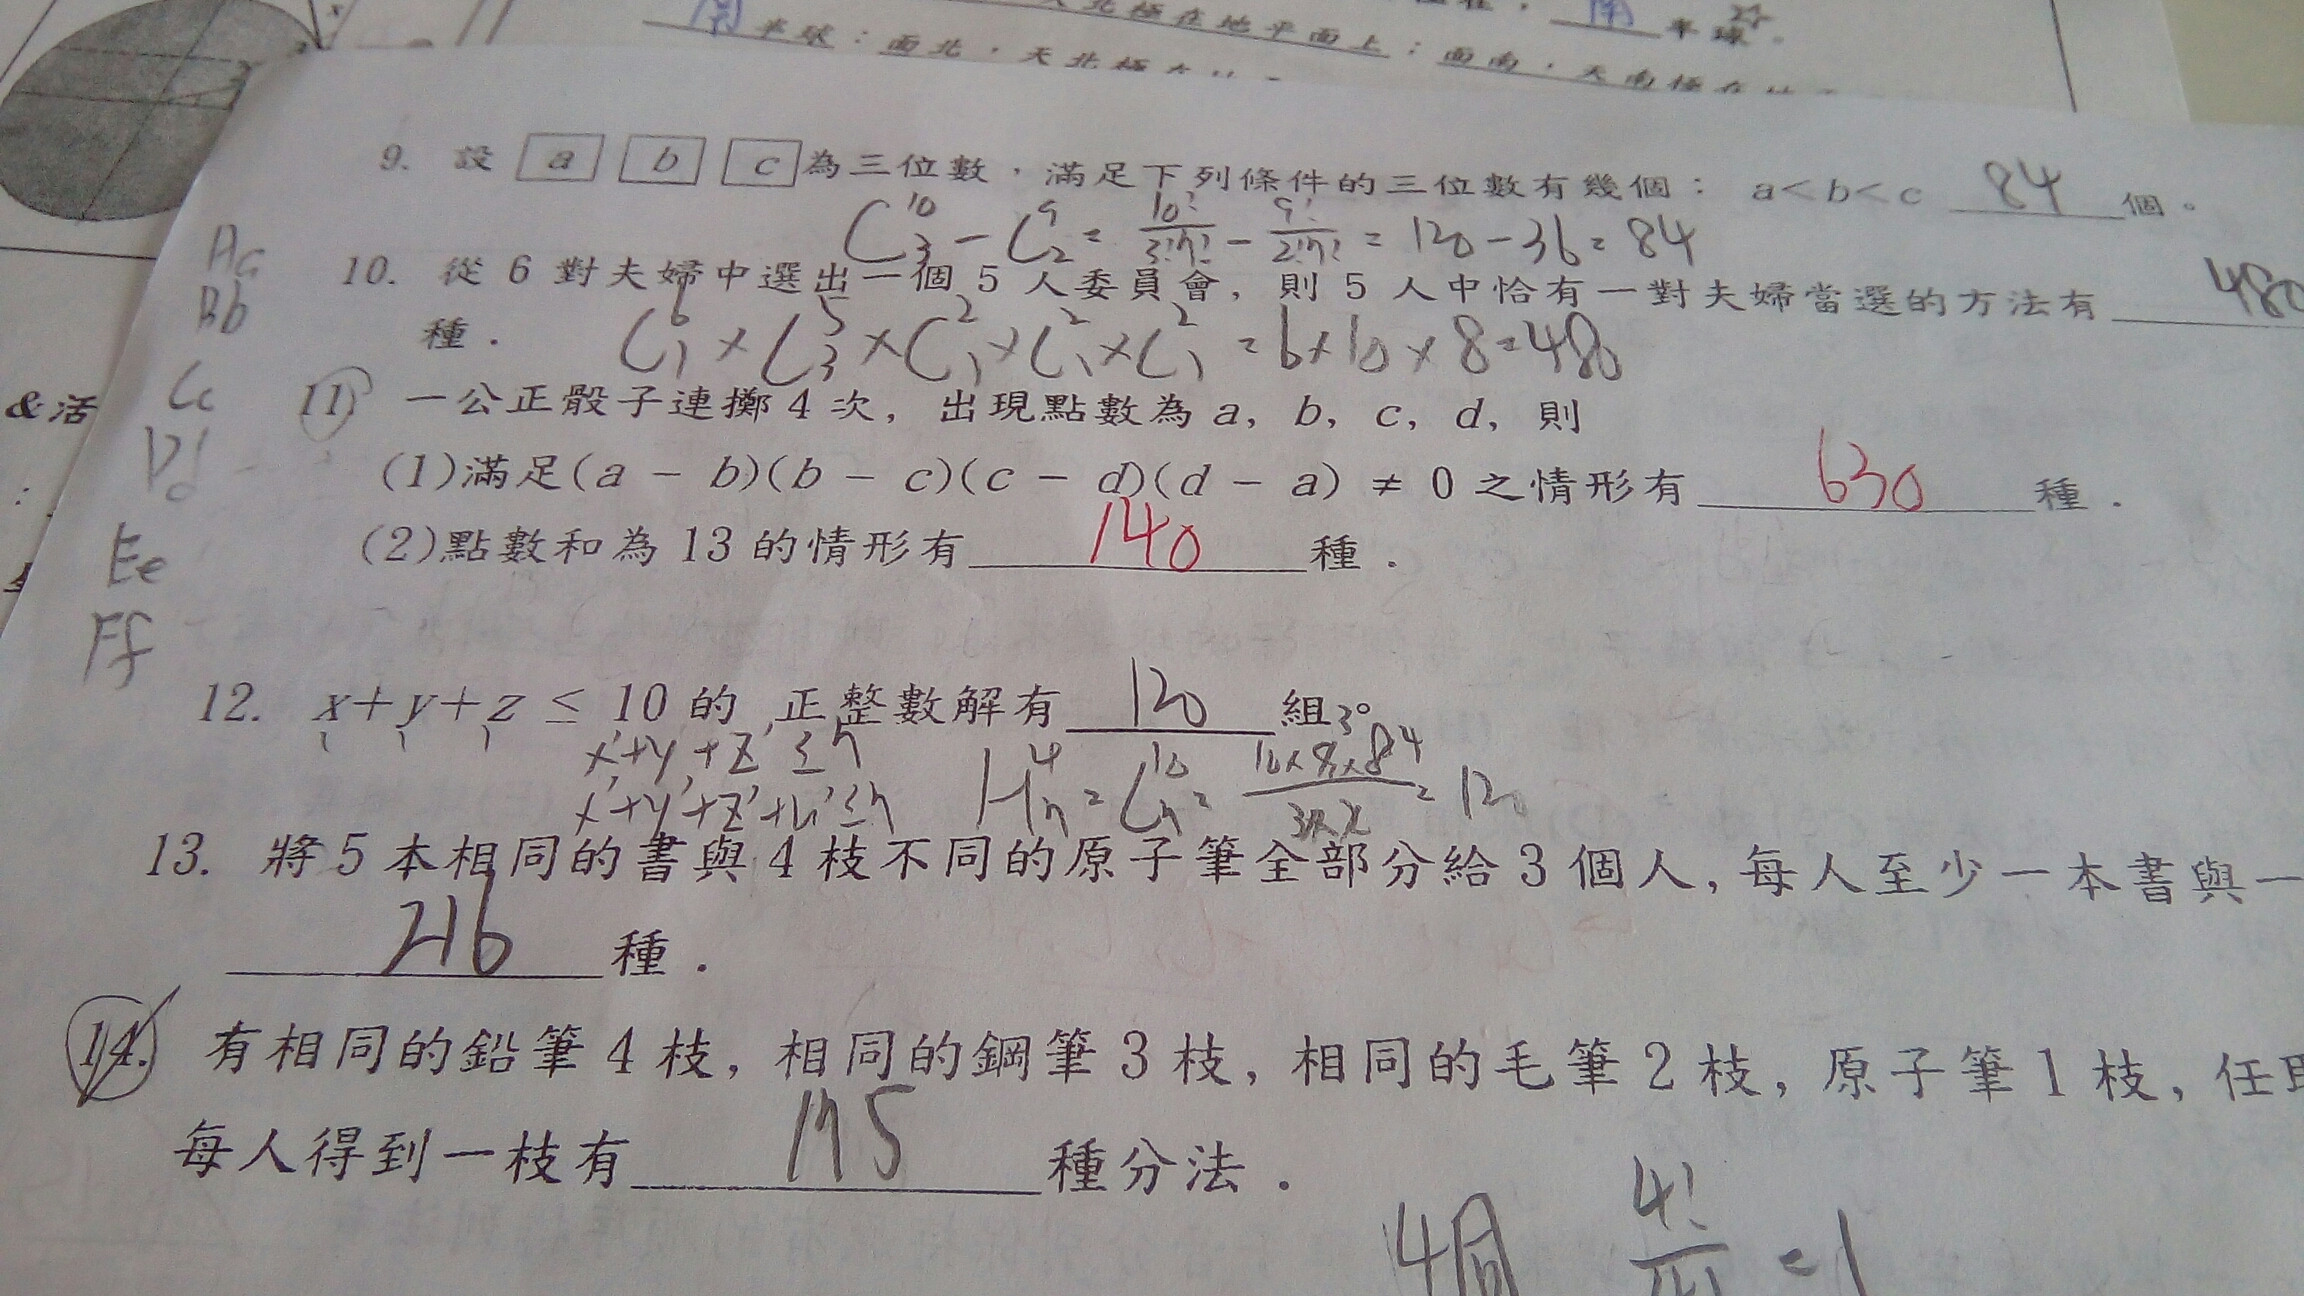 南半球：面北，天北極在
天北極在地平面上；面南，天南極在
南半球。
&活
9. 設 a b c 為三位數，滿足下列條件的三位數有幾個： a<b<c 84 個。
C¹⁰₃ - C⁹₂ = 10!/3!7! - 9!/2!7! = 120 - 36 = 84
Aa
Bb
Cc
Dd
Ee
Ff
10. 從 6 對夫婦中選出一個 5 人委員會, 則 5 人中恰有一對夫婦當選的方法有 480
種．
C⁶₁ × C⁵₃ × C²₁ × C²₁ × C²₁ = 6×10×8=480
11 一公正骰子連擲 4 次, 出現點數為 a, b, c, d, 則
(1)滿足(a - b)(b - c)(c - d)(d - a) ≠ 0 之情形有 630 種．
(2)點數和為 13 的情形有 140 種．
12. x+y+z ≤ 10 的 正整數解有 120 組。
1 1 1
x'+y'+z' ≤7
x'+y'+z'+u' ≤7
H⁴₇ = C¹⁰₇ = = 120
13. 將 5 本相同的書與 4 枝不同的原子筆全部分給 3 個人, 每人至少一本書與一
216 種．
14. 有相同的鉛筆 4 枝, 相同的鋼筆 3 枝, 相同的毛筆 2 枝, 原子筆 1 枝, 任
每人得到一枝有 175 種分法．
4同 4!/4! =1